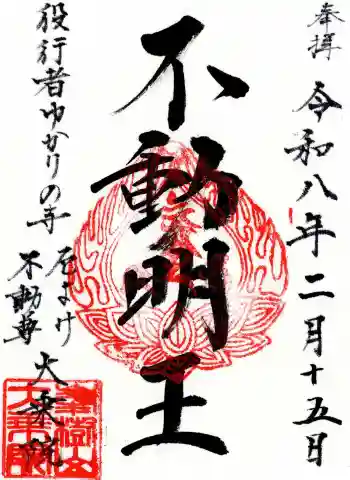 奉拝
令和八年二月十五日
不動明王
役行者ゆかりの寺
厄よけ
不動尊
大乗院